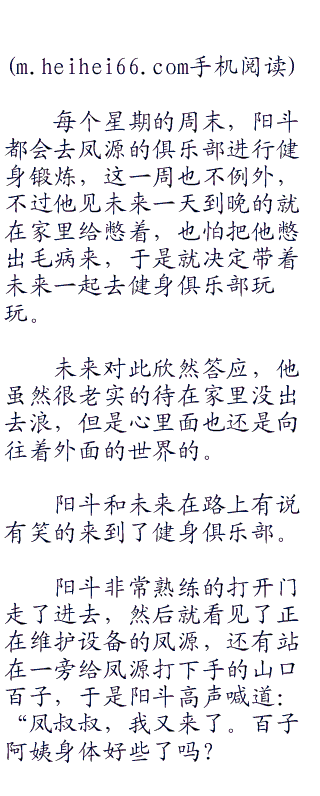 (m.heihei66.com手机阅读)
每个星期的周末，阳斗
都会去凤源的俱乐部进行健
身锻炼，这一周也不例外，
不过他见未来一天到晚的就
在家里给憋着，也怕把他憋
出毛病来，于是就决定带着
未来一起去健身俱乐部玩
玩。
未来对此欣然答应，他
虽然很老实的待在家里没出
去浪，但是心里面也还是向
往着外面的世界的。
阳斗和未来在路上有说
有笑的来到了健身俱乐部。
阳斗非常熟练的打开门
走了进去，然后就看见了正
在维护设备的凤源，还有站
在一旁给凤源打下手的山口
百子，于是阳斗高声喊道：
“凤叔叔，我又来了。百子
阿姨身体好些了吗？